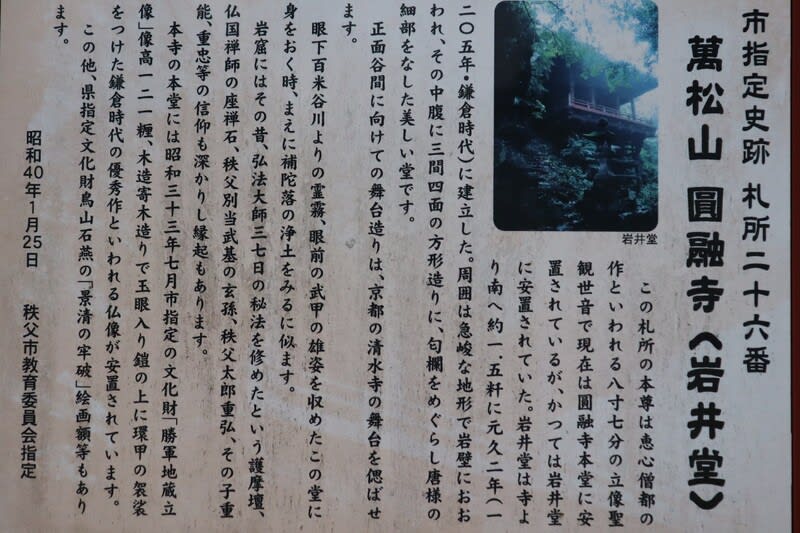 市指定史跡 札所二十六番
萬松山 圓融寺〈岩井堂〉
岩井堂
この札所の本尊は恵心僧都の
作といわれる八寸七分の立像聖
観世音で現在は圓融寺本堂に安
置されているが、かつては岩井堂
に安置されていた。岩井堂は寺よ
り南へ約一.五粁に元久二年(一
二〇五年・鎌倉時代)に建立した。周囲は急峻な地形で岩壁におお
われ、その中腹に三間四面の方形造りに、勾欄をめぐらし唐様の
細部をなした美しい堂です。
正面谷間に向けての舞台造りは、京都の清水寺の舞台を偲ばせ
ます。
眼下百米谷川よりの霊霧、眼前の武甲の雄姿を収めたこの堂に
身をおく時、まえに補陀落の浄土をみるに似ます。
岩窟にはその昔、弘法大師三七日の秘法を修めたという護摩壇、
仏国禅師の座禅石、秩父別当武基の玄孫、秩父太郎重弘、その子重
能、重忠等の信仰も深かりし縁起もあります。
本寺の本堂には昭和三十三年七月市指定の文化財「勝軍地蔵立
像」像高一二一糎、木造寄木造りで玉眼入り鎧の上に環甲の袈裟
をつけた鎌倉時代の優秀作といわれる仏像が安置されています。
この他、県指定文化財鳥山石燕の「景清の牢破」絵画額等もあり
ます。
昭和40年1月25日 秩父市教育委員会指定